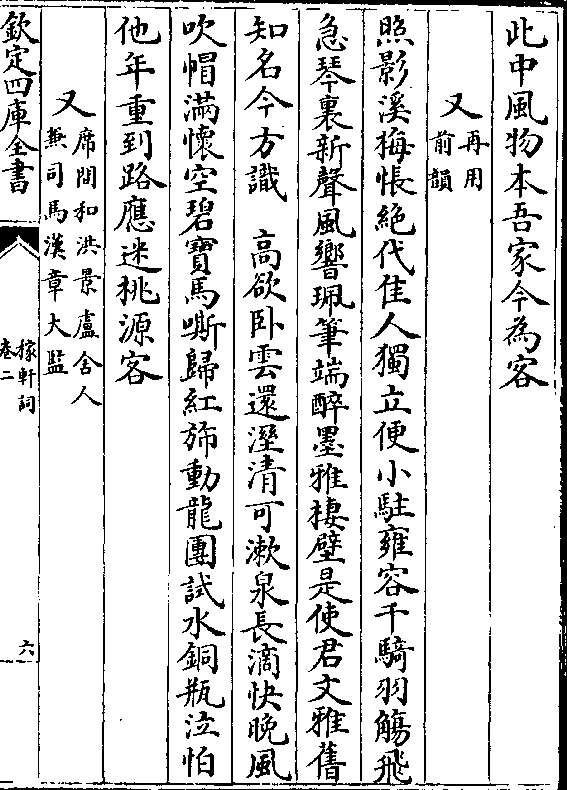 此中風物本吾家今為客
又再用
前韻
照影溪梅悵絕代佳人獨立便小駐雍容千騎羽觴飛
急琴裏新聲風響珮筆端醉墨雅棲壁是使君文雅舊
知名今方識　高欲卧雲還溼清可漱泉長滴快晚風
吹帽滿懷空碧寶馬嘶歸紅斾動龍團試水銅瓶泣怕
他年重到路應迷桃源客
又席間和洪景盧舍人
兼司馬漢章大監
欽定四庫全書
稼軒詞
卷二
六